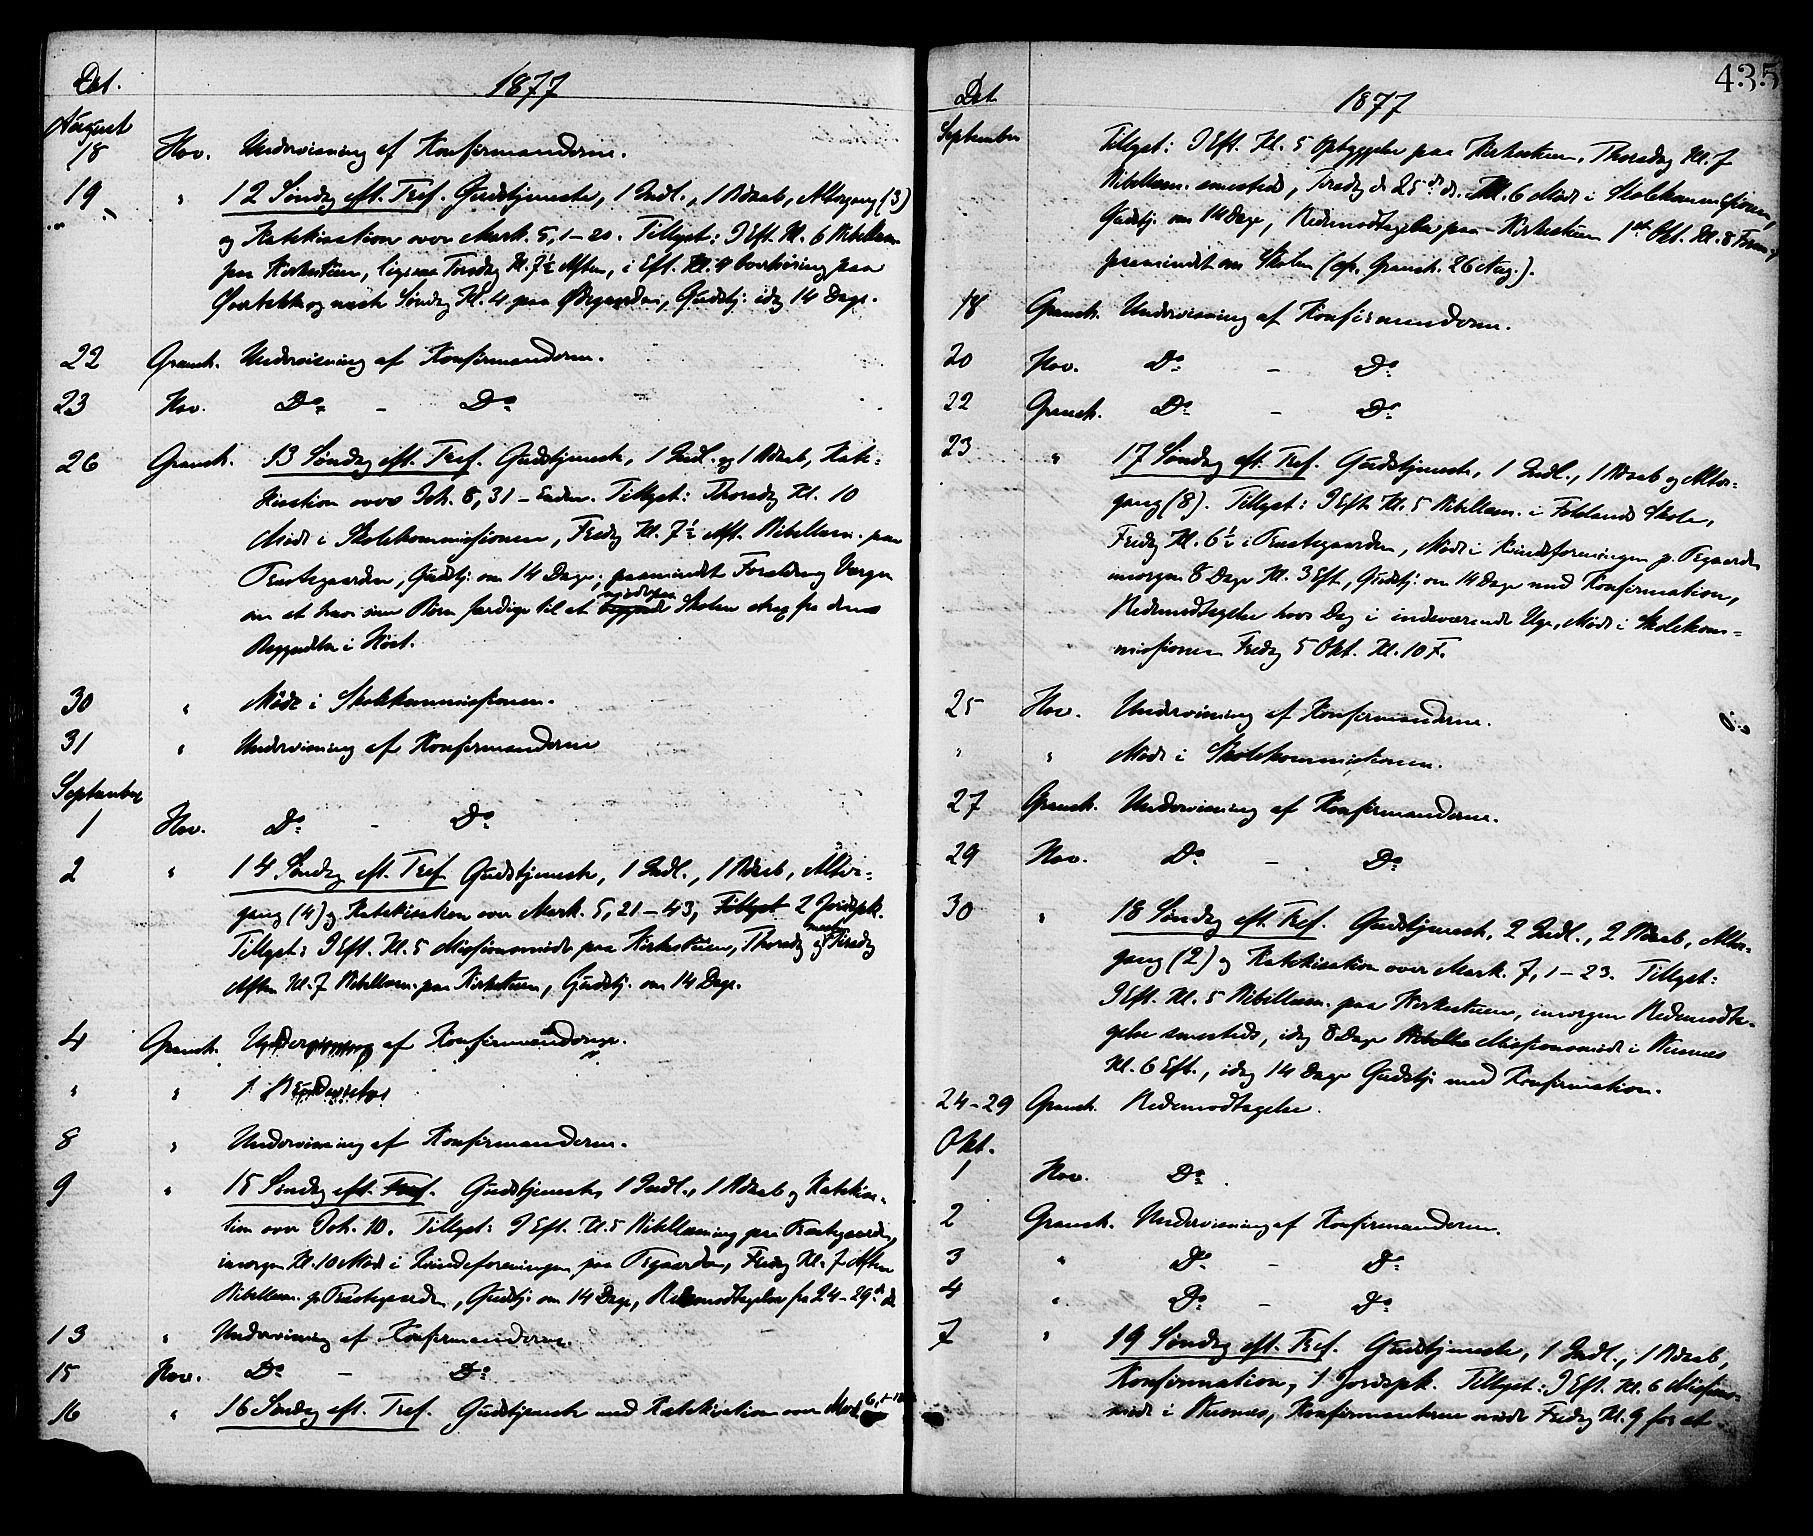 Dat.
1877
August
18 Hov. Undervisning af Konfirmanderne.
19 " 12 Søndag eft. Tref. Gudstjeneste, 1 Indl., 1 Udsab, Altergang (3)
og Katekisation over Mark. 5, 1-20. Tillyst: I Eft. Kl. 6 Bibellæsn.
paa Kirkestuen, ligesaa Torsdag Kl. 7½ Aften, i Eft. Kl. 4 paa
og næste Søndag Kl. 4 paa Gudstj. idag 14 Dage.
22 Gransh. Undervisning af Konfirmanderne.
23 Hov. Do - Do
26 Gransh. 13 Søndag eft. Tref. Gudstjeneste, 1 Indl. og 1 Udsab, Kate-
kisation over Joh. 8, 31 - Enden. Tillyst: Thorsdag Kl. 10
Møde i Skolekommissionen, Fredag Kl. 7½ Aft. Bibellæsn. paa
Præstegaarden, Gudstj. om 14 Dage; paamindet Forældre og Værger
om at have sine Børn færdige til at begynde mødepaa Skolen strax fra dens
Begyndelse i Høst.
30 " Møde i Skolekommissionen.
31 " Undervisning af Konfirmanderne
September
1 Hov. Do - Do
2 " 14 Søndag eft. Tref. Gudstjeneste, 1 Indl., 1 Udsab, Alter-
gang (4) og Katekisation over Mark. 5, 21-43, Tillyst 2 Jordspk.
Tillyst: I Eft. Kl. 5 Missionsmøde paa Kirkestuen, Thorsdag og næste Tirsdag
Aften Kl. 7 Bibellæsn. paa Kirkestuen, Gudstj. om 14 Dage.
4 Gransh. Undervisning af Konfirmanderne.
" " 1
8 " Undervisning af Konfirmanderne.
9 " 15 Søndag eft. Tref. Gudstjeneste, 1 Indl., 1 Udsab og Katekisa-
tion over Joh. 10. Tillyst: I Eft. Kl. 5 Bibellæsning paa Præstegaarden,
imorgen Kl. 10 Møde i Kvindeforeningen paa Fredag Kl. 7 Aften
Bibellæsn. p. Præstegaarden, Gudstj. om 14 Dage, Redemodtagelse fra 24-29de ds
13 " Undervisning af Konfirmanderne.
15 Hov. Do - Do
16 " 16 Søndag eft. Tref. Gudstjeneste med Katekisation over Mark. 6, 1-
435
Dat.
1877
September
Tillyst: I Eft. Kl. 5 Opbyggelse paa Kirkestuen, Thorsdag Kl. 7
Bibellæsn. smesteds, Tirsdag d. 25de ds. Kl. 6 Møde i Skolekommissionen,
Gudstj. om 14 Dage, Redemodtagelse paa Kirkestuen 1ste Okt. Kl. 8 Form.,
paamindet om Skolen (cfr. Gransh. 26 Aug.).
18 Gransh. Undervisning af Konfirmanderne.
20 Hov. Do - Do
22 Gransh. Do - Do
23 " 17 Søndag eft. Tref. Gudstjeneste, 1 Indl., 1 Udsab og Alter-
gang (8). Tillyst: I Eft. Kl. 5 Bibellæsn. i Skole,
Fredag Kl. 6½ i Præstegaarden, Møde i Kvindeforeningen p.
imorgen 8 Dage Kl. 3 Eft., Gudstj. om 14 Dage med Konfirmation,
Redemodtagelse hver Dag i indeværende Uge, Møde i Skolekom-
missionen Fredag 5 Okt. Kl. 10 F.
25 Hov. Undervisning af Konfirmanderne.
" " Møde i Skolekommissionen.
27 Gransh. Undervisning af Konfirmanderne.
29 Hov. Do - Do
30 " 18 Søndag eft. Tref. Gudstjeneste, 2 Indl., 2 Udsab, Alter-
gang (2) og Katekisation over Mark. 7, 1-23. Tillyst:
I Eft. Kl. 5 Bibellæsn. paa Kirkestuen, imorgen Redemodta-
gelse smesteds, idag 8 Dage Missionsmøde i
Kl. 6 Eft., idag 14 Dage Gudstj. med Konfirmation.
24-29 Gransh. Redemodtagelse.
Okt.
1 Hov. Do
2 Gransh. Undervisning af Konfirmanderne.
3 " Do - Do
4 " Do - Do
7 " 19 Søndag eft. Tref. Gudstjeneste, 1 Indl., 1 Udsab,
Konfirmation, 1 Jordspk. Tillyst: I Eft. Kl. 6 Missions-
møde i Konfirmanterne møde Fredag Kl. 9 for at